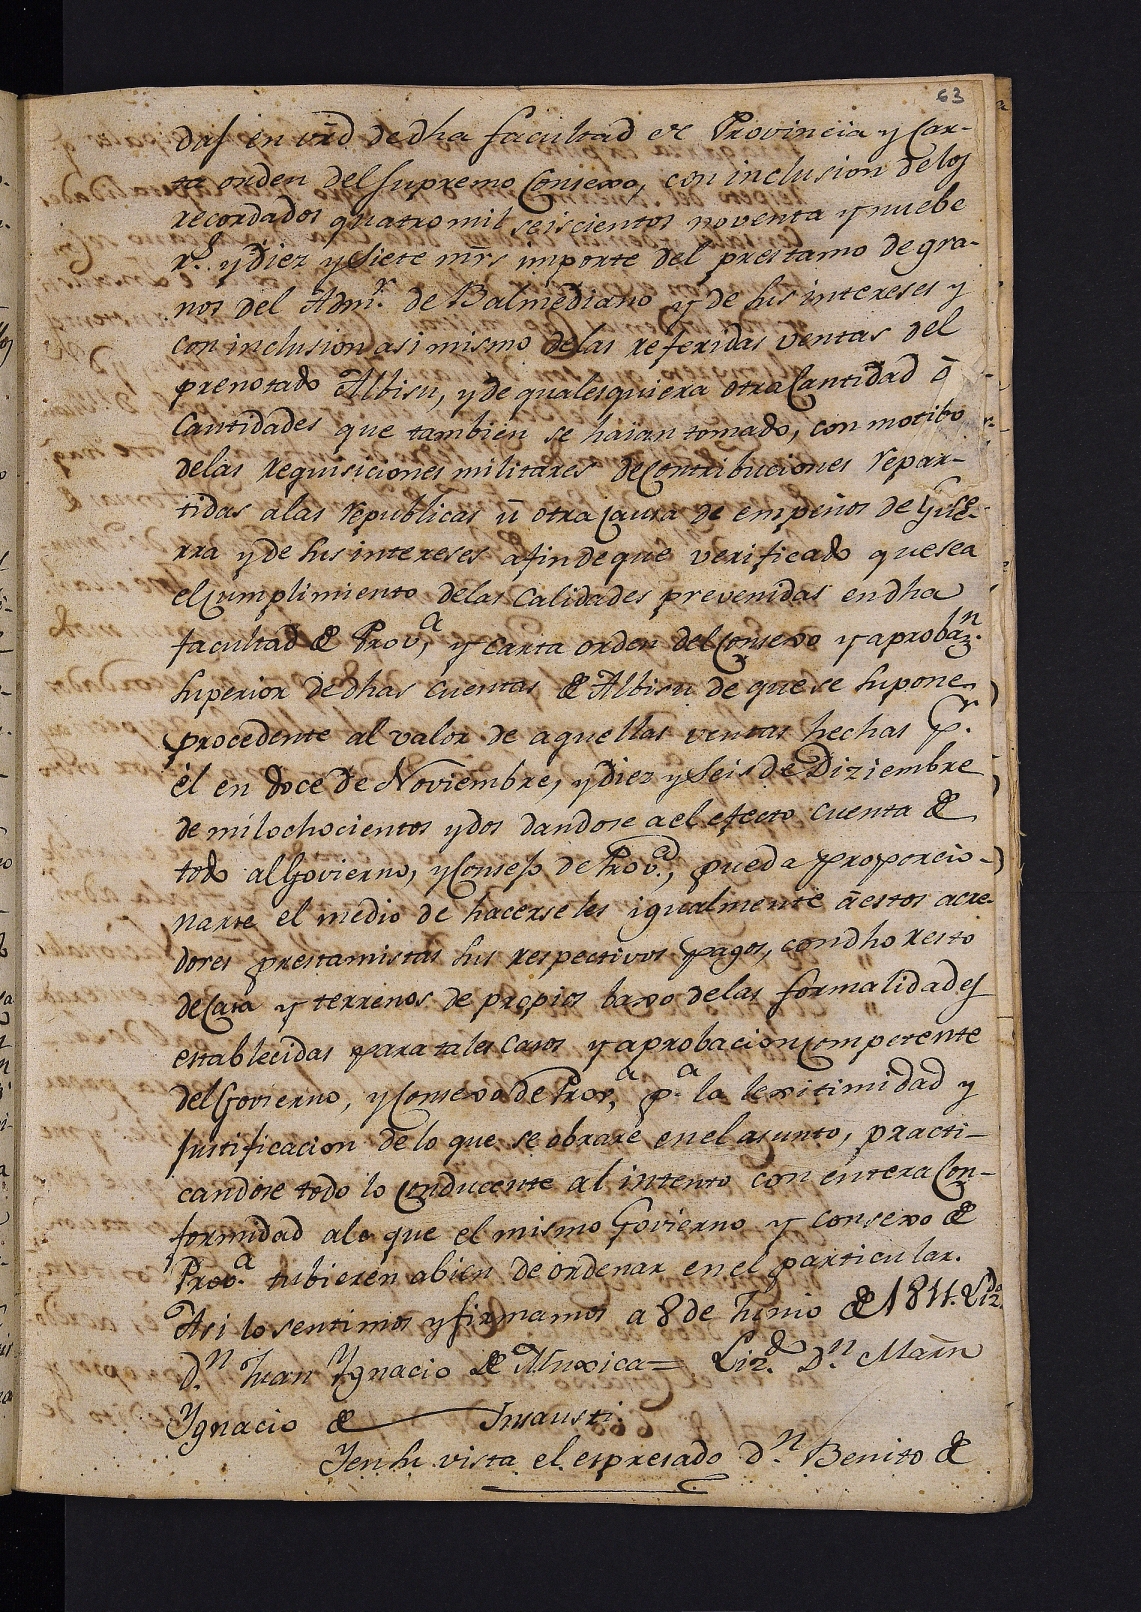 63
das en vrd. de dha facultad de Provincia y Car-
ta orden del Supremo Consexo, con inclusion de los
recordados quatro mil seiscientos noventa y nuebe
r.s y diez y siete mrs. importe del prestamo de gra-
nos del Adm.r de Balmediano y de sus intereses y
con inclusion asi mismo de las referidas ventas del
prenotado Albisu, y de qualesquiera otra Cantidad ó
Cantidades que tambien se haian tomado, con motibo
de las requisiciones militares de Contribuciones repar-
tidas a las republicas ú otra Causa de empeños de Gue-
rra y de sus intereses afin de que verificado que sea
el Cumplimiento de las Calidades prevenidas en dha
facultad de Prov.a, y carta orden del Consexo y aprobaz.n
Superior de dhas cuentas de Albisu de que se supone
procedente al valor de aquellas ventas hechas p.r
él en doce de Noviembre, y diez y seis de Diziembre
de mil ochocientos y dos dandose a el efecto cuenta de
todo al Govierno, y Consejo de Prov.a, pueda proporcio-
narse el medio de hacerseles igualmente á estos acre-
dores prestamistas sus respectivos pagos, con dho resto
de Casa y terrenos de propios baxo de las formalidades
establecidas para tales casos y aprobacion competente
del Govierno, y Consexo de Prov.a, p.a la lexitimidad y
Justificacion de lo que se obrare en el asunto, practi-
candose todo lo conducente al intento con entera Con-
formidad a lo que el mismo Govierno y consexo de
Prov.a tubieren abien de ordenar en el particular.
Asi lo sentimos y firmamos a 8 de Junio de 1811. Liz.do
D.n Juan Ygnacio de Muxica = Liz.do D.n Martn
Ygnacio de Inausti.
Yen su vista el espresado D.n Benito de